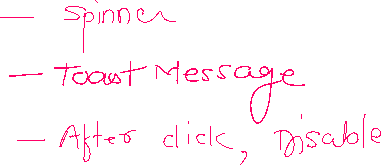 — Spinner
— Toast Message
— After click, Disable